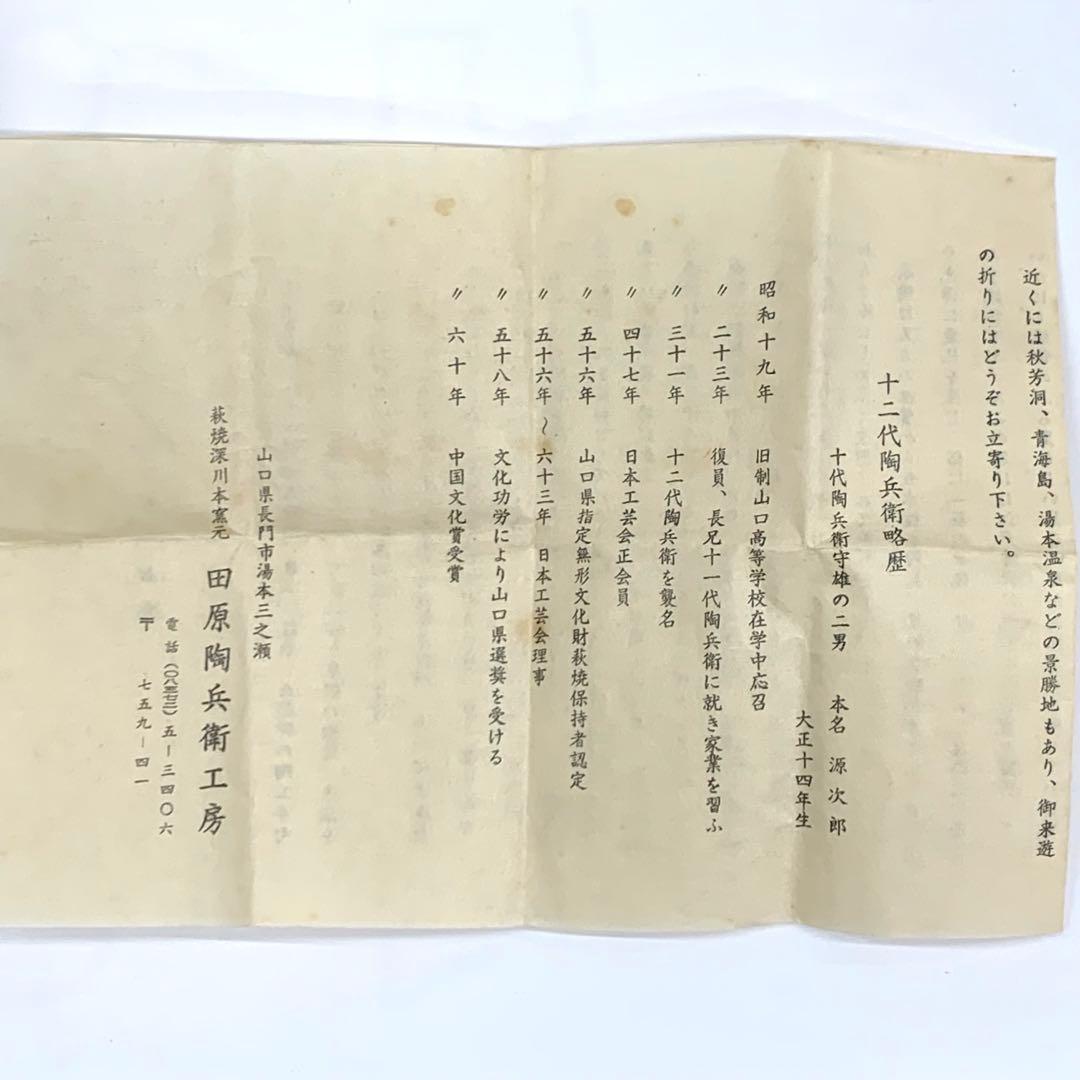 近くには秋芳洞、青海島、湯本温泉などの景勝地もあり、御来遊
の折りにはどうぞお立寄り下さい。
十二代陶兵衛略歴
十代陶兵衛守雄の二男 本名 源次郎
大正十四年生
昭和十九年 旧制山口高等学校在学中応召
〃 二十三年 復員、長兄十一代陶兵衛に就き家業を習ふ
〃 三十一年 十二代陶兵衛を襲名
〃 四十七年 日本工芸会正会員
〃 五十六年 山口県指定無形文化財萩焼保持者認定
〃 五十六年〜六十三年 日本工芸会理事
〃 五十八年 文化功労により山口県選奨を受ける
〃 六十年 中国文化賞受賞
山口県長門市湯本三之瀬
萩焼深川本窯元 田原陶兵衛工房
電話(〇八三七二)五ー三四〇六
〒 七五九ー四一